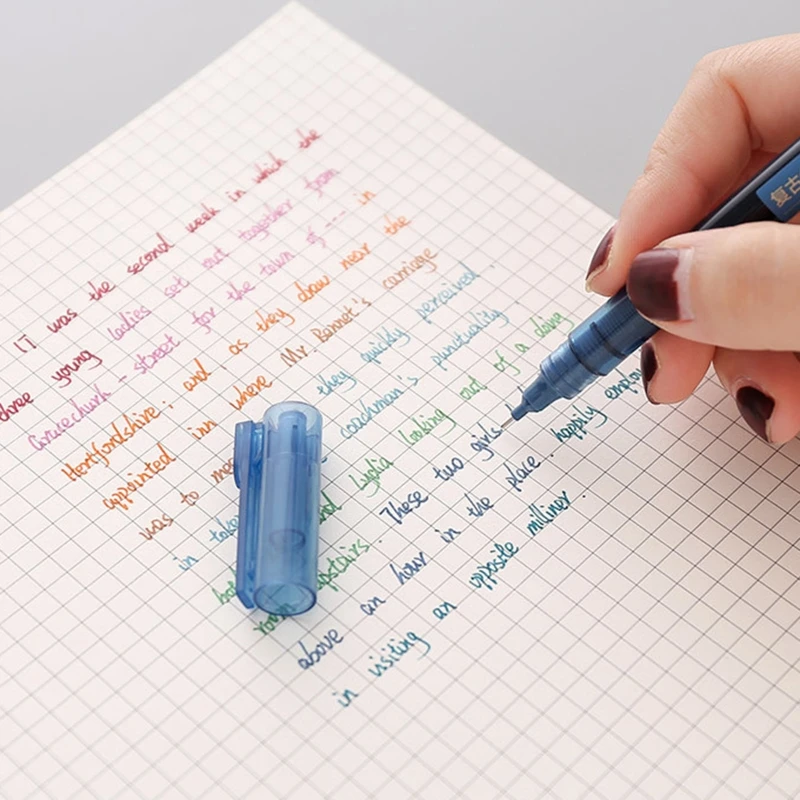 IT was the second week in which the
three young ladies set out together from
Gracechurch - street for the town of --- in
Hertfordshire; and, as they draw near the
appointed inn where Mr. Bennet's carriage
was to they quickly perceived.
in coachman's punctuality,
Lydia looking out of a ding
upstairs. These two girls
above an hour in the place. happily
in visiting an opposite milliner.
复古